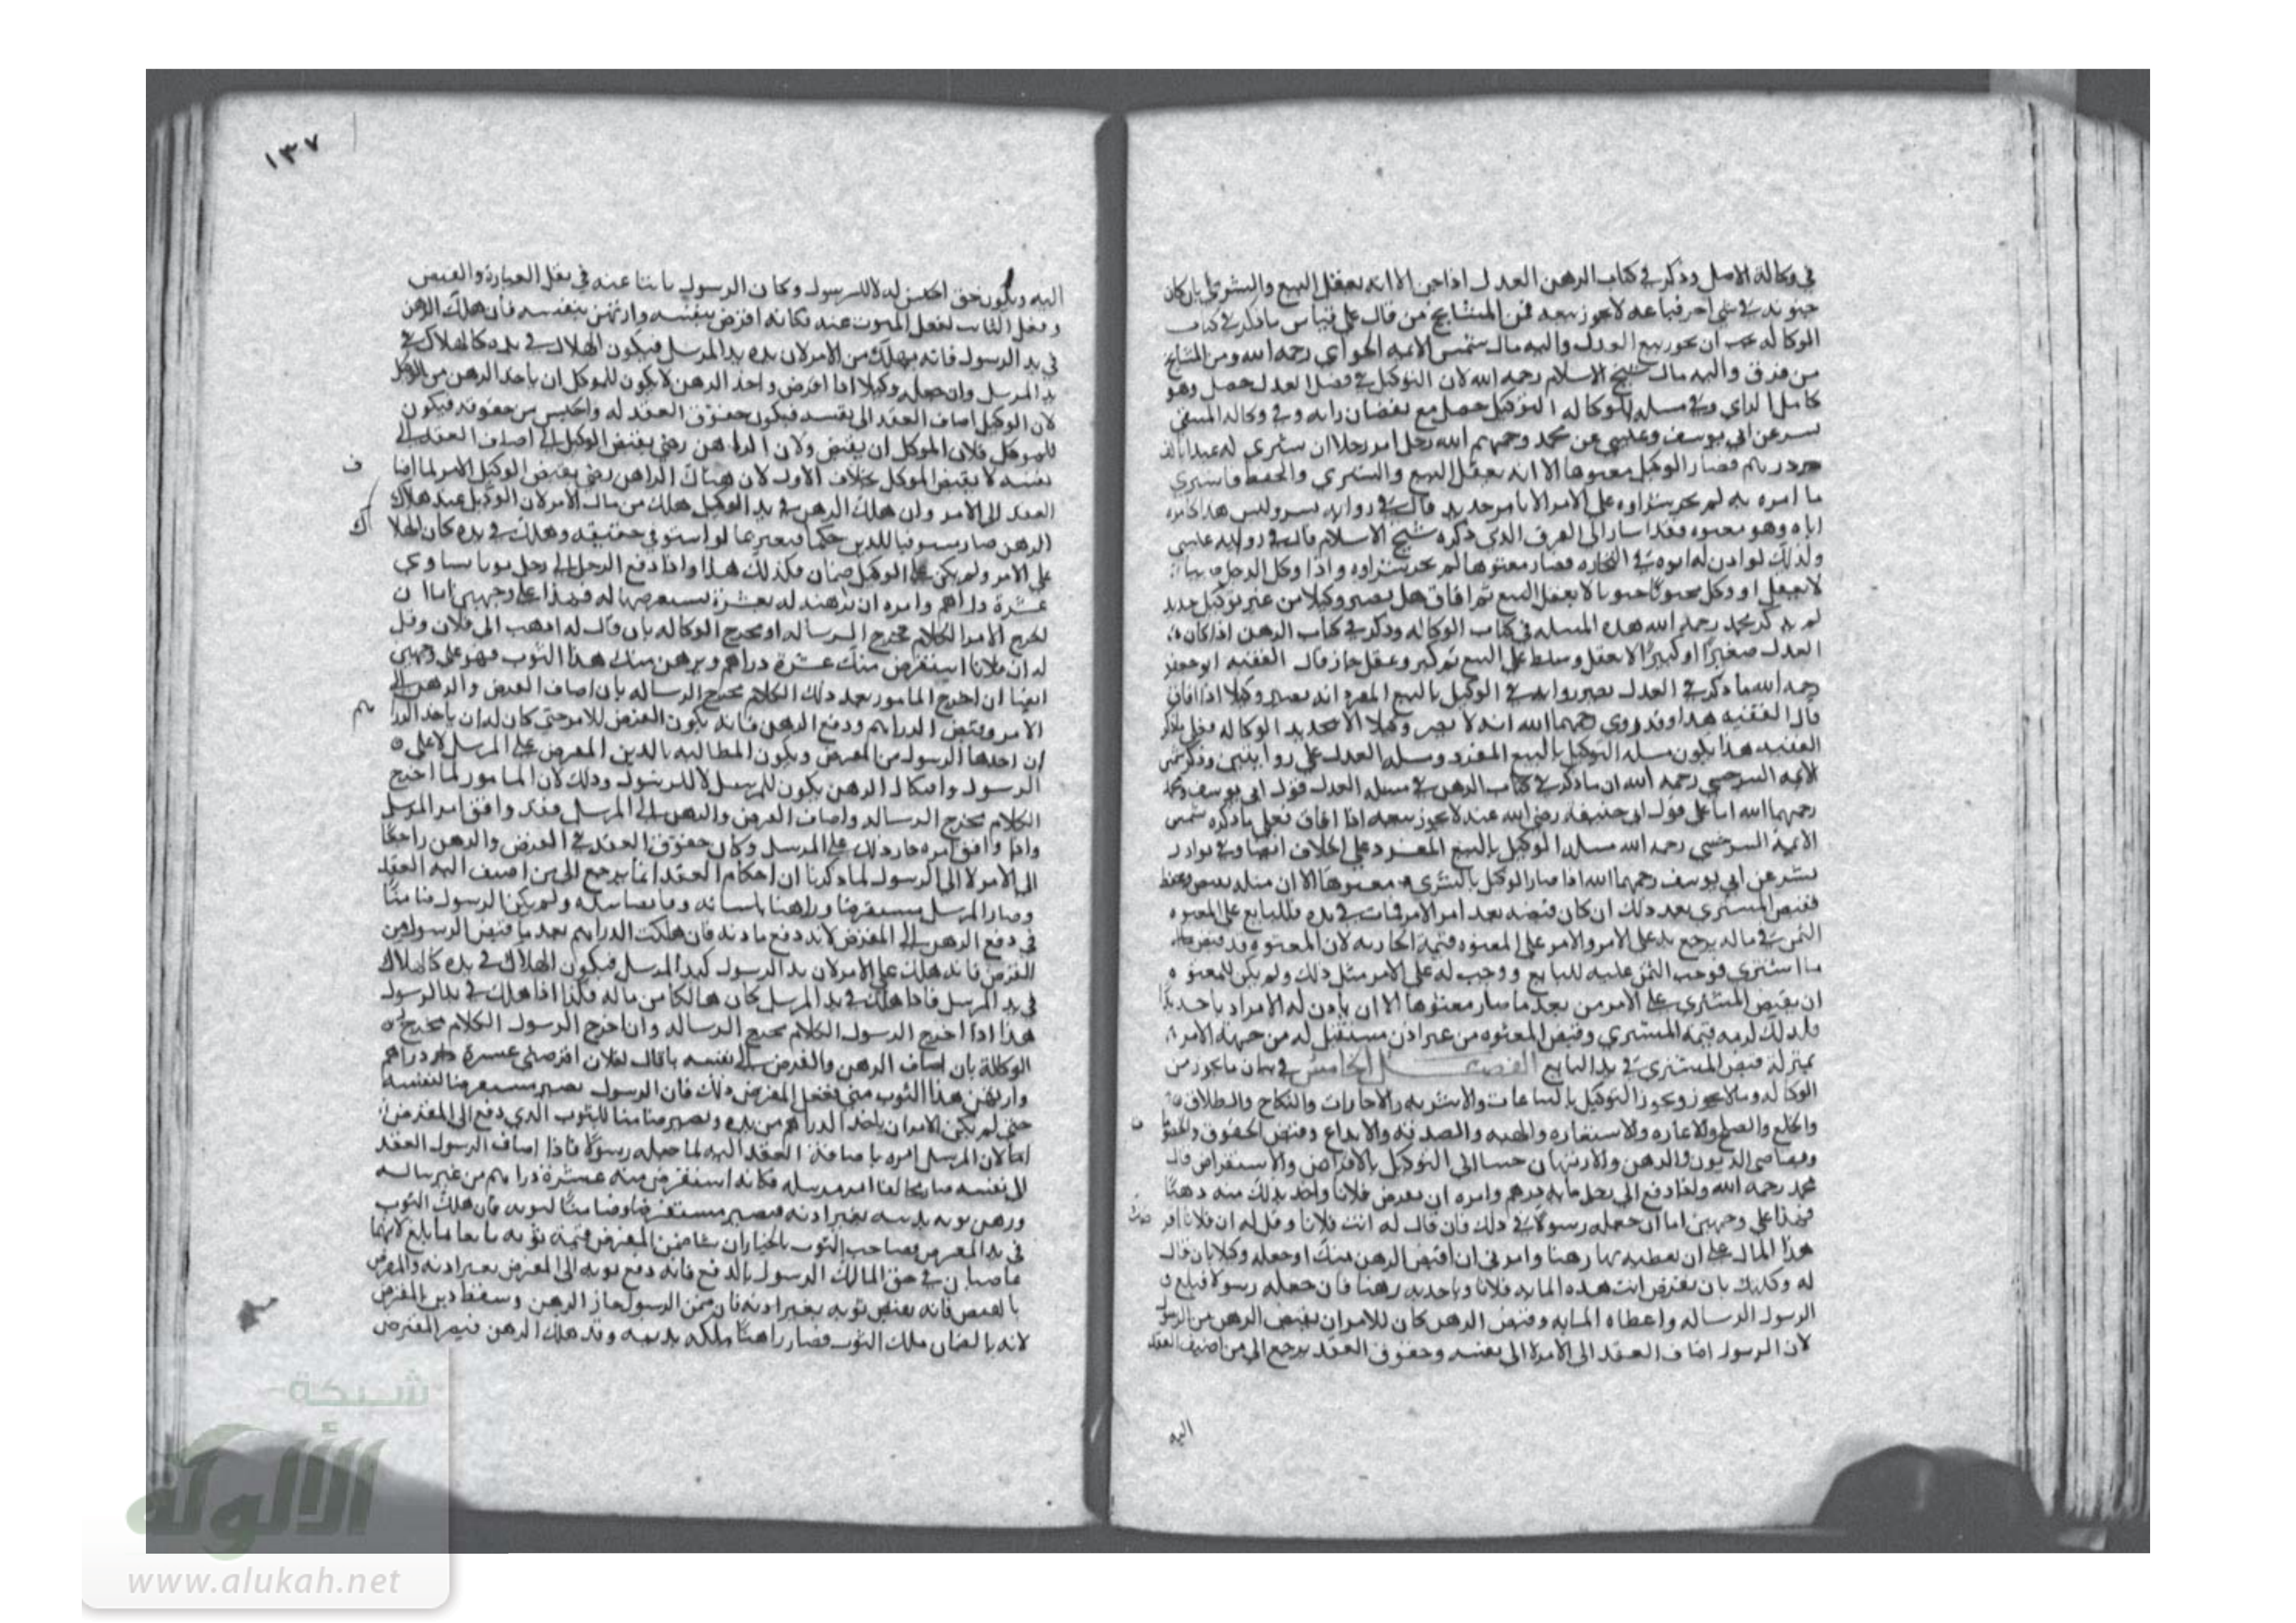 في وكالة الاصل وذكر في كتاب الرهن العدل اذا جن الا انه يعقل البيع والشرى بان كان
جنونه في شي اخر فباعه لا يجوز بيعه فمن المشايخ من قال على قياس ما ذكر في كتاب
الوكاله يجب ان يجوز بيع العدل واليه مال شمس الايمه الحلواي رحمه الله ومن المشايخ
من فرق واليه مال شيخ الاسلام رحمه الله لان التوكيل في فصل العدل حصل وهو
كامل الراي وفي مسله الوكاله التوكيل حصل مع نقصان رايه وفي وكالة المنتقى
بشر عن ابي يوسف وعيسى عن محمد رحمهم الله رجل امر رجلا ان يشتري له عبدا بالف
درهم فصار الوكيل معتوها الا انه يعقل البيع والشري
ما امره به لم يجز شراوه على الامر الا بامر جديد قال في روايه بشر وليس هذا كامره
اياه وهو معتوه فقد اشار الى الفرق الذي ذكره شيخ الاسلام قال في رواية عيسى
وكذلك لو اذن له ابوه في التجاره فصار معتوها لم يجز شراوه واذا وكل الرجل صبيا
لا يعقل او وكل مجنونا جنونا لا يعقل البيع ثم افاق هل يصير وكيلا من غير توكيل جديد
لم يذكر محمد رحمه الله هذه المسله في كتاب الوكاله وذكر في كتاب الرهن اذا كان
العدل صغيرا او كبيرا لا يعقل وسلط على البيع ثم كبر وعقل جاز قال الفقيه ابو جعفر
رحمه الله ما ذكر في العدل يصير روايه في الوكيل بالبيع المفرد انه يصير وكيلا اذا افاق
قال الفقيه هذا وقد روي عنهما رحمهما الله انه لا يصير وكيلا الا بتجديد الوكاله فعلى ما ذكر
الفقيه هذا يكون مسله التوكيل بالبيع المفرد ومسله العدل على روايتين وذكر شمس
الايمه السرخسي رحمه الله ان ما ذكر في كتاب الرهن في مسله العدل قول ابي يوسف ومحمد
رحمهما الله اما على قول ابي حنيفة رضي الله عنه لا يجوز بيعه اذا افاق فعلى ما ذكره شمس
الايمة السرخسي رحمه الله مسله الوكيل بالبيع المفرد على الخلاف ايضا وفي نوادر
بشر عن ابي يوسف رحمهما الله اذا صار الوكيل بالشرى معتوها الا ان مثله
فقبض المشتري بعد ذلك ان كان قبضه بعد امر الامر فمات في يده فللبايع على المعتوه
الثمن في ماله يرجع به على الامر وللامر على المعتوه قيمة الجاريه لان المعتوه قد قبض
ما اشترى فوجب الثمن عليه للبايع ووجب له على الامر مثل ذلك ولم يكن للمعتوه
ان يقبض المشترى على الامر من بعد ما صار معتوها الا ان ياذن له الامر
فلذلك لزمه قيمة المشتري وقبض المعتوه من غير اذن مستقبل له من جهة الامر
بمنزلة قبض المشترى في يد البايع الفصل الخامس في بيان ما يجوز من
الوكاله وما لا يجوز ويجوز التوكيل بالبياعات والاشريه والاجارات والنكاح والطلاق
والخلع والصلح والاعاره والاستعاره والهبه والصدقه والايداع وقبض الحقوق
وتقاضي الديون والرهن والارتهان جينا الى التوكيل بالاقراض والاستقراض قال
محمد رحمه الله واذا دفع الى رجل مايه درهم وامره ان يقرض فلانا واخذ بذلك منه رهنا
فهذا على وجهين اما ان جعله رسولا في ذلك فان قال له ائت فلانا وقل له ان فلانا اقرضك
هذا المال على ان تعطيه بها رهنا وامرني ان اقبض الرهن منك او جعله وكيلا بان قال
له وكلتك بان تقرض انت هذه المايه فلانا وياخذ به رهنا فان جعله رسولا فبلغ
الرسول الرساله واعطاه المايه وقبض الرهن كان للامر ان يقبض الرهن من الرسول
لان الرسول اضاف العقد الى الامر لا الى نفسه وحقوق العقد يرجع الى من اضيف العقد
اليه
١٣٧
اليه ويكون حق الحبس له لا للرسول وكان الرسول نايبا عنه في نقل العبارة والقبض
وفعل النايب كفعل المنوب عنه فكانه اقرض بنفسه وارتهن بنفسه فان هلك الرهن
في يد الرسول فانه يهلك من الامر لان يده يد المرسل فيكون الهلاك في يده كالهلاك في
يد المرسل وان جعله وكيلا اذا اقرض واخذ الرهن لا يكون للموكل ان ياخذ الرهن من الوكيل
لان الوكيل اضاف العقد الى نفسه فيكون حقوق العقد له والحبس من حقوقه فيكون
للموكل فلان الموكل ان يقبض ولان الراهن رضي بقبض الوكيل اضاف العقد الى
نفسه لا بقبض الموكل بخلاف الاول لان هناك الراهن رضي بقبض الوكيل الامر لما اضا
ف
العقد الى الامر وان هلك الرهن في يد الوكيل هلك من مال الامر لان الوكيل عند هلاك
الرهن صار مستوفيا للدين حكما فيعتبر بما لو استوفى حقيقه وهلك في يده كان الهلا
ك
على الامر ولم يكن على الوكيل ضمان فكذلك هذا واذا دفع الرجل الى رجل ثوبا يساوي
عشرة دراهم وامره ان يرهنه له بعشرة يستقرضها له فهذا على وجهين اما ان
اخرج الامر الكلام مخرج الرساله او مخرج الوكاله بان قال له اذهب الى فلان وقل
له ان فلانا استقرض منك عشرة دراهم ويرهن منك هذا الثوب فهو على وجهين
ايضا ان اخرج المامور بعد ذلك الكلام مخرج الرساله بان اضاف القرض والرهن الى
الامر وقبض الدراهم ودفع الرهن فانه يكون القرض للامر حتى كان له ان ياخذ الدرا
هم
ان اخذها الرسول من المقرض ويكون المطالبه بالدين المقرض على المرسل لا على
الرسول وافتكاك الرهن يكون للمرسل لا للرسول وذلك لان المامور لما اخرج
الكلام مخرج الرساله واضاف القرض والرهن الى المرسل فقد وافق امر المرسل
واذا وافق امره جاز ذلك على المرسل وكان حقوق العقد في القرض والرهن راجعا
الى الامر لا الى الرسول لما ذكرنا ان احكام العقد انما يرجع الى من اضيف اليه العقد
وصار المرسل مستقرضا وراهنا بلسانه ولم يكن الرسول ضامنا
في دفع الرهن الى المقرض لانه دفع باذنه فان هلكت الدراهم بعد ما قبض الرسول من
المقرض فانه هلك على الامر لان يد الرسول كيد المرسل فيكون الهلاك في يده كالهلاك
في يد المرسل فاذا هلك في يد المرسل كان هالكا من ماله فكذا اذا هلك في يد الرسول
هذا اذا اخرج الرسول الكلام مخرج الرساله وان اخرج الرسول الكلام مخرج
الوكالة بان اضاف الرهن والقرض الى نفسه بان قال لفلان اقرضني عشرة دراهم
وارتهن هذا الثوب مني ففعل المقرض ذلك فان الرسول يصير مستقرضا لنفسه
حتى لم يكن للامر ان ياخذ الدراهم من يده ويصير ضامنا للثوب الذي دفع الى المقرض
لان المرسل امره باضافة العقد اليه لما جعله رسولا فاذا اضاف الرسول العقد
الى نفسه صار مخالفا امر مرسله فكانه استقرض منه عشرة دراهم من غير رساله
ورهن ثوبه بدينه بغير اذنه فيصير مستقرضا وضامنا لثوبه فان هلك الثوب
في يد المقرض فصاحب الثوب بالخيار ان شا ضمن المقرض قيمة ثوبه بالغا ما بلغ لانهما
غاصبان في حق المالك الرسول بالدفع فانه دفع ثوبه الى المقرض بغير اذنه والمقرض
بالقبض فانه قبض ثوبه بغير اذنه فان ضمن الرسول جاز الرهن وسقط دين المقرض
لانه بالضمان ملك الثوب فصار راهنا ملكه بدينه وقد هلك الرهن فيصير المقرض
شبكة
الألوكة
www.alukah.net